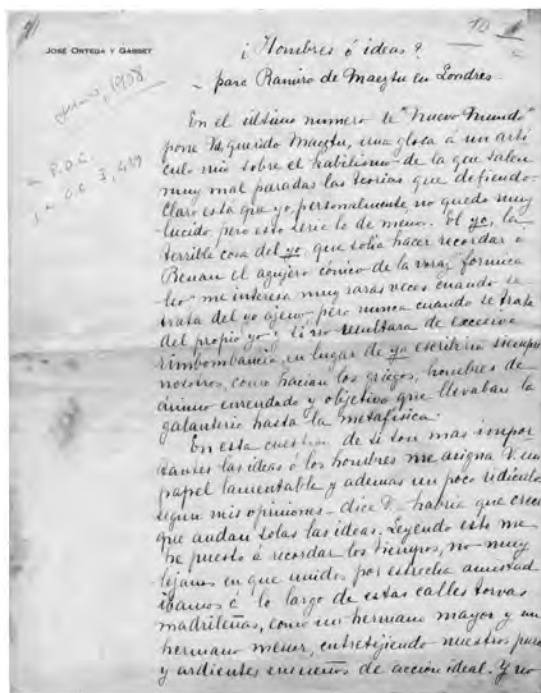 10
JOSÉ ORTEGA Y GASSET
¿Hombres ó ideas?
- para Ramiro de Maeztu en Londres -
Junio, 1908
P.D.C.
O.C. I, 439
En el último número de "Nuevo Mundo"
pone Vd, querido Maeztu, una glosa á un artí
culo mio sobre el kabilismo de la que salen
muy mal paradas las teorías que defiendo.
Claro está que yo, personalmente no quedo muy
lucido, pero esto sería lo de menos. El yo, la
terrible cosa del yo, que solia hacer recordar a
Renan el agujero cónico de la voraz formica
leo me interesa muy raras veces cuando se
trata del yo ajeno pero nunca cuando se trata
del propio yo y si no resultara de excesiva
rimbombancia, en lugar de yo escribiria siempre
nosotros, como hacian los griegos, hombres de
ánimo enredado y objetivo que llevaban la
galanteria hasta la metafísica.
En esta cuestion de si son mas impor
tantes las ideas ó los hombres me asigna V. un
papel lamentable y ademas un poco ridículo
segun mis opiniones - dice V. - habria que creer
que andan solas las ideas. Leyendo esto me
he puesto á recordar los tiempos, no muy
lejanos en que unidos por estrecha amistad
ibamos á lo largo de estas calles torvas
madrileñas, como un hermano mayor y un
hermano menor, entretejiendo nuestros puros
y ardientes ensueños de acción ideal. Y no